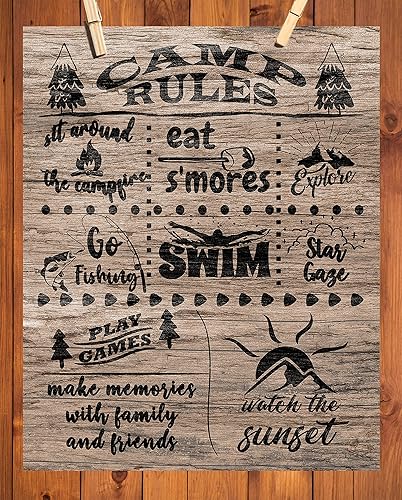 CAMP
RULES
sit around
the campfire
eat
s'mores
Explore
Go
Fishing
SWIM
Star
Gaze
PLAY
GAMES
make memories
with family
and friends
watch the
sunset